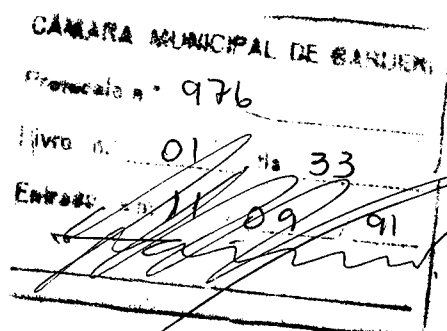 CÂMARA MUNICIPAL DE BARUERI
Protocolo n.º 976
Livro n. 01 fls 33
Entrada em 11 09 91